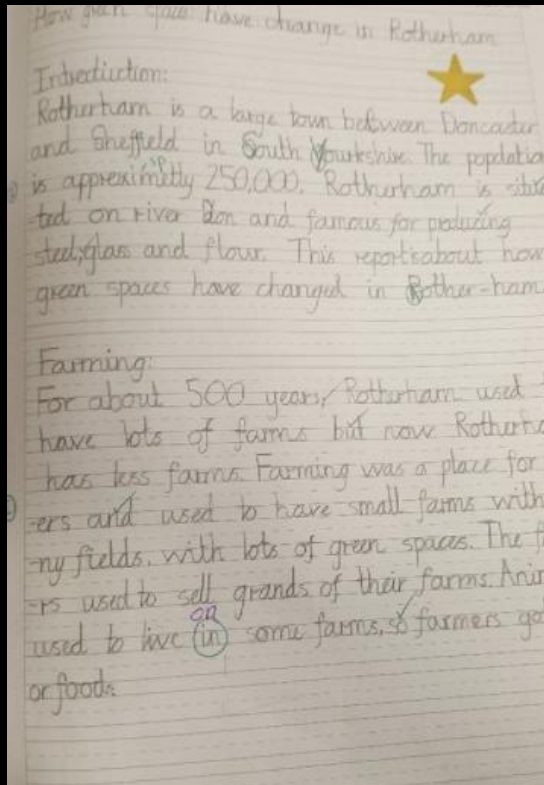 How green spaces have change in Rotherham
Introduction:
Rotherham is a large town between Doncaster
and Sheffield in South Yourkshire. The populatio
is approximatly 250,000. Rotherham is situa
-ted on river Don and famous for producing
steel, glass and flour. This report is about how
green spaces have changed in Rother-ham
Farming:
For about 500 years, Rotherham used
have lots of farms but now Rotherha
has less farms. Farming was a place for
-ers and used to have small farms with
-ny fields, with lots of green spaces. The f
-rs used to sell grands of their farms. Anim
on
used to live in some farms, so farmers go
or food.